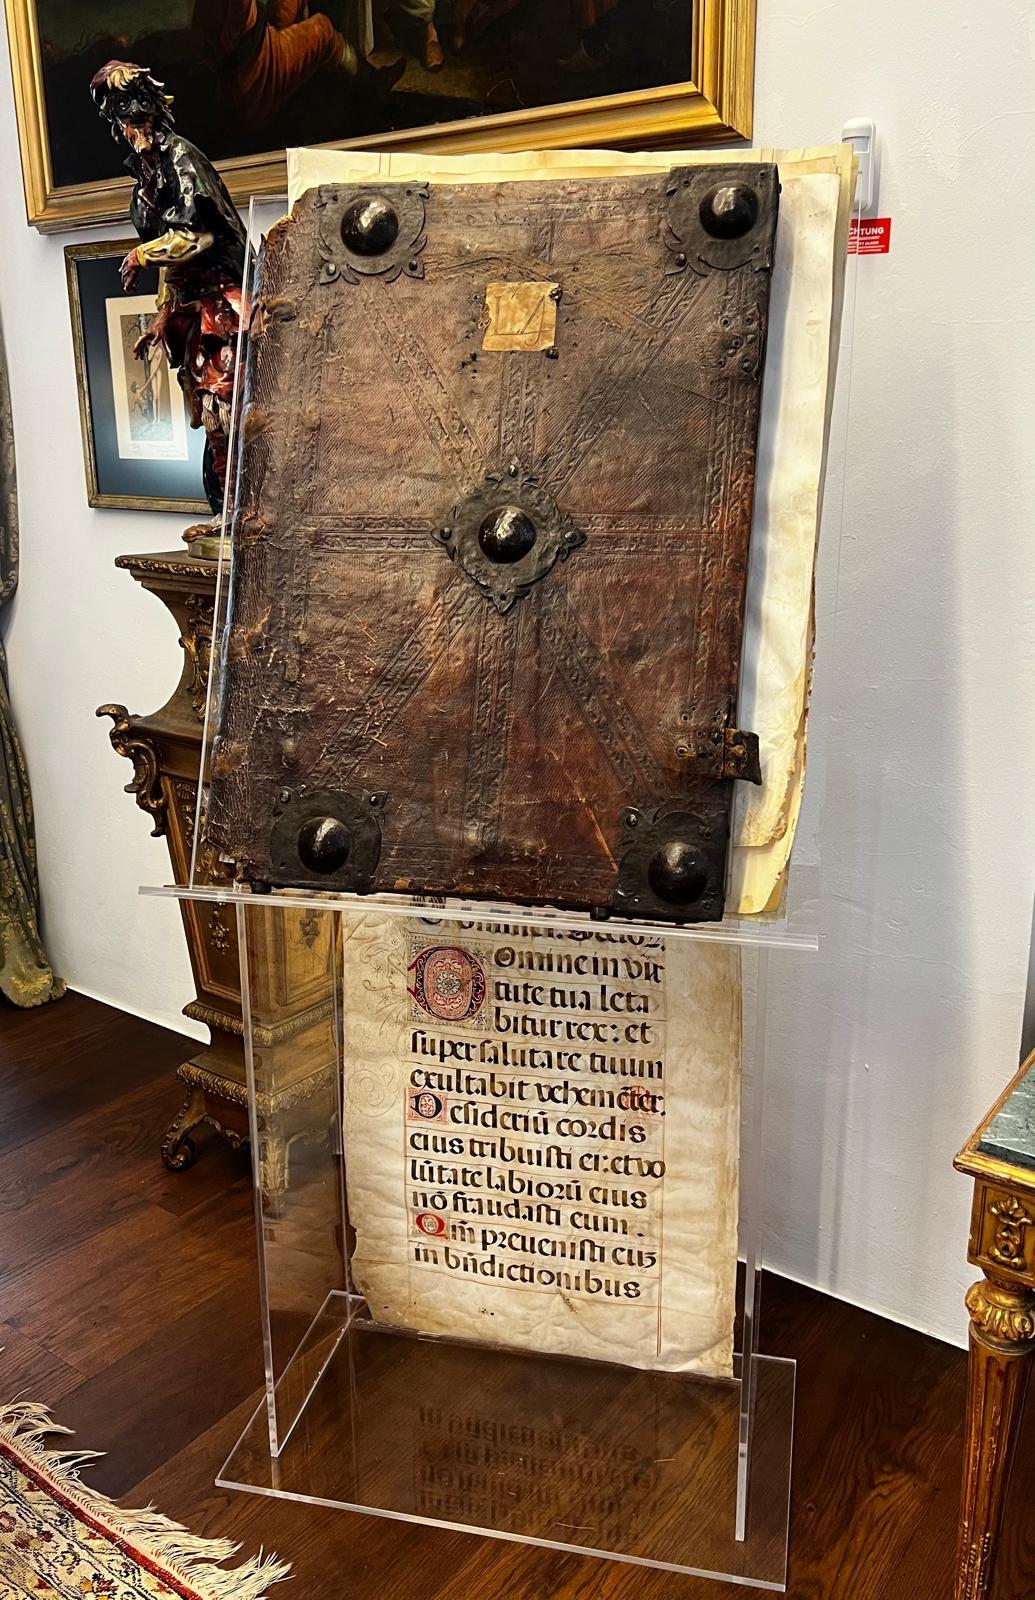 CHTUNG
Omine in vir
tute tua leta
bitur rex: et
super salutare tuum
exultabit vehemēter.
Desideriū cordis
eius tribuisti ei: et vo
lūtate labiorū eius
nō fraudasti eum.
Qm̄ preuenisti euʒ
in bn̄dictionibus